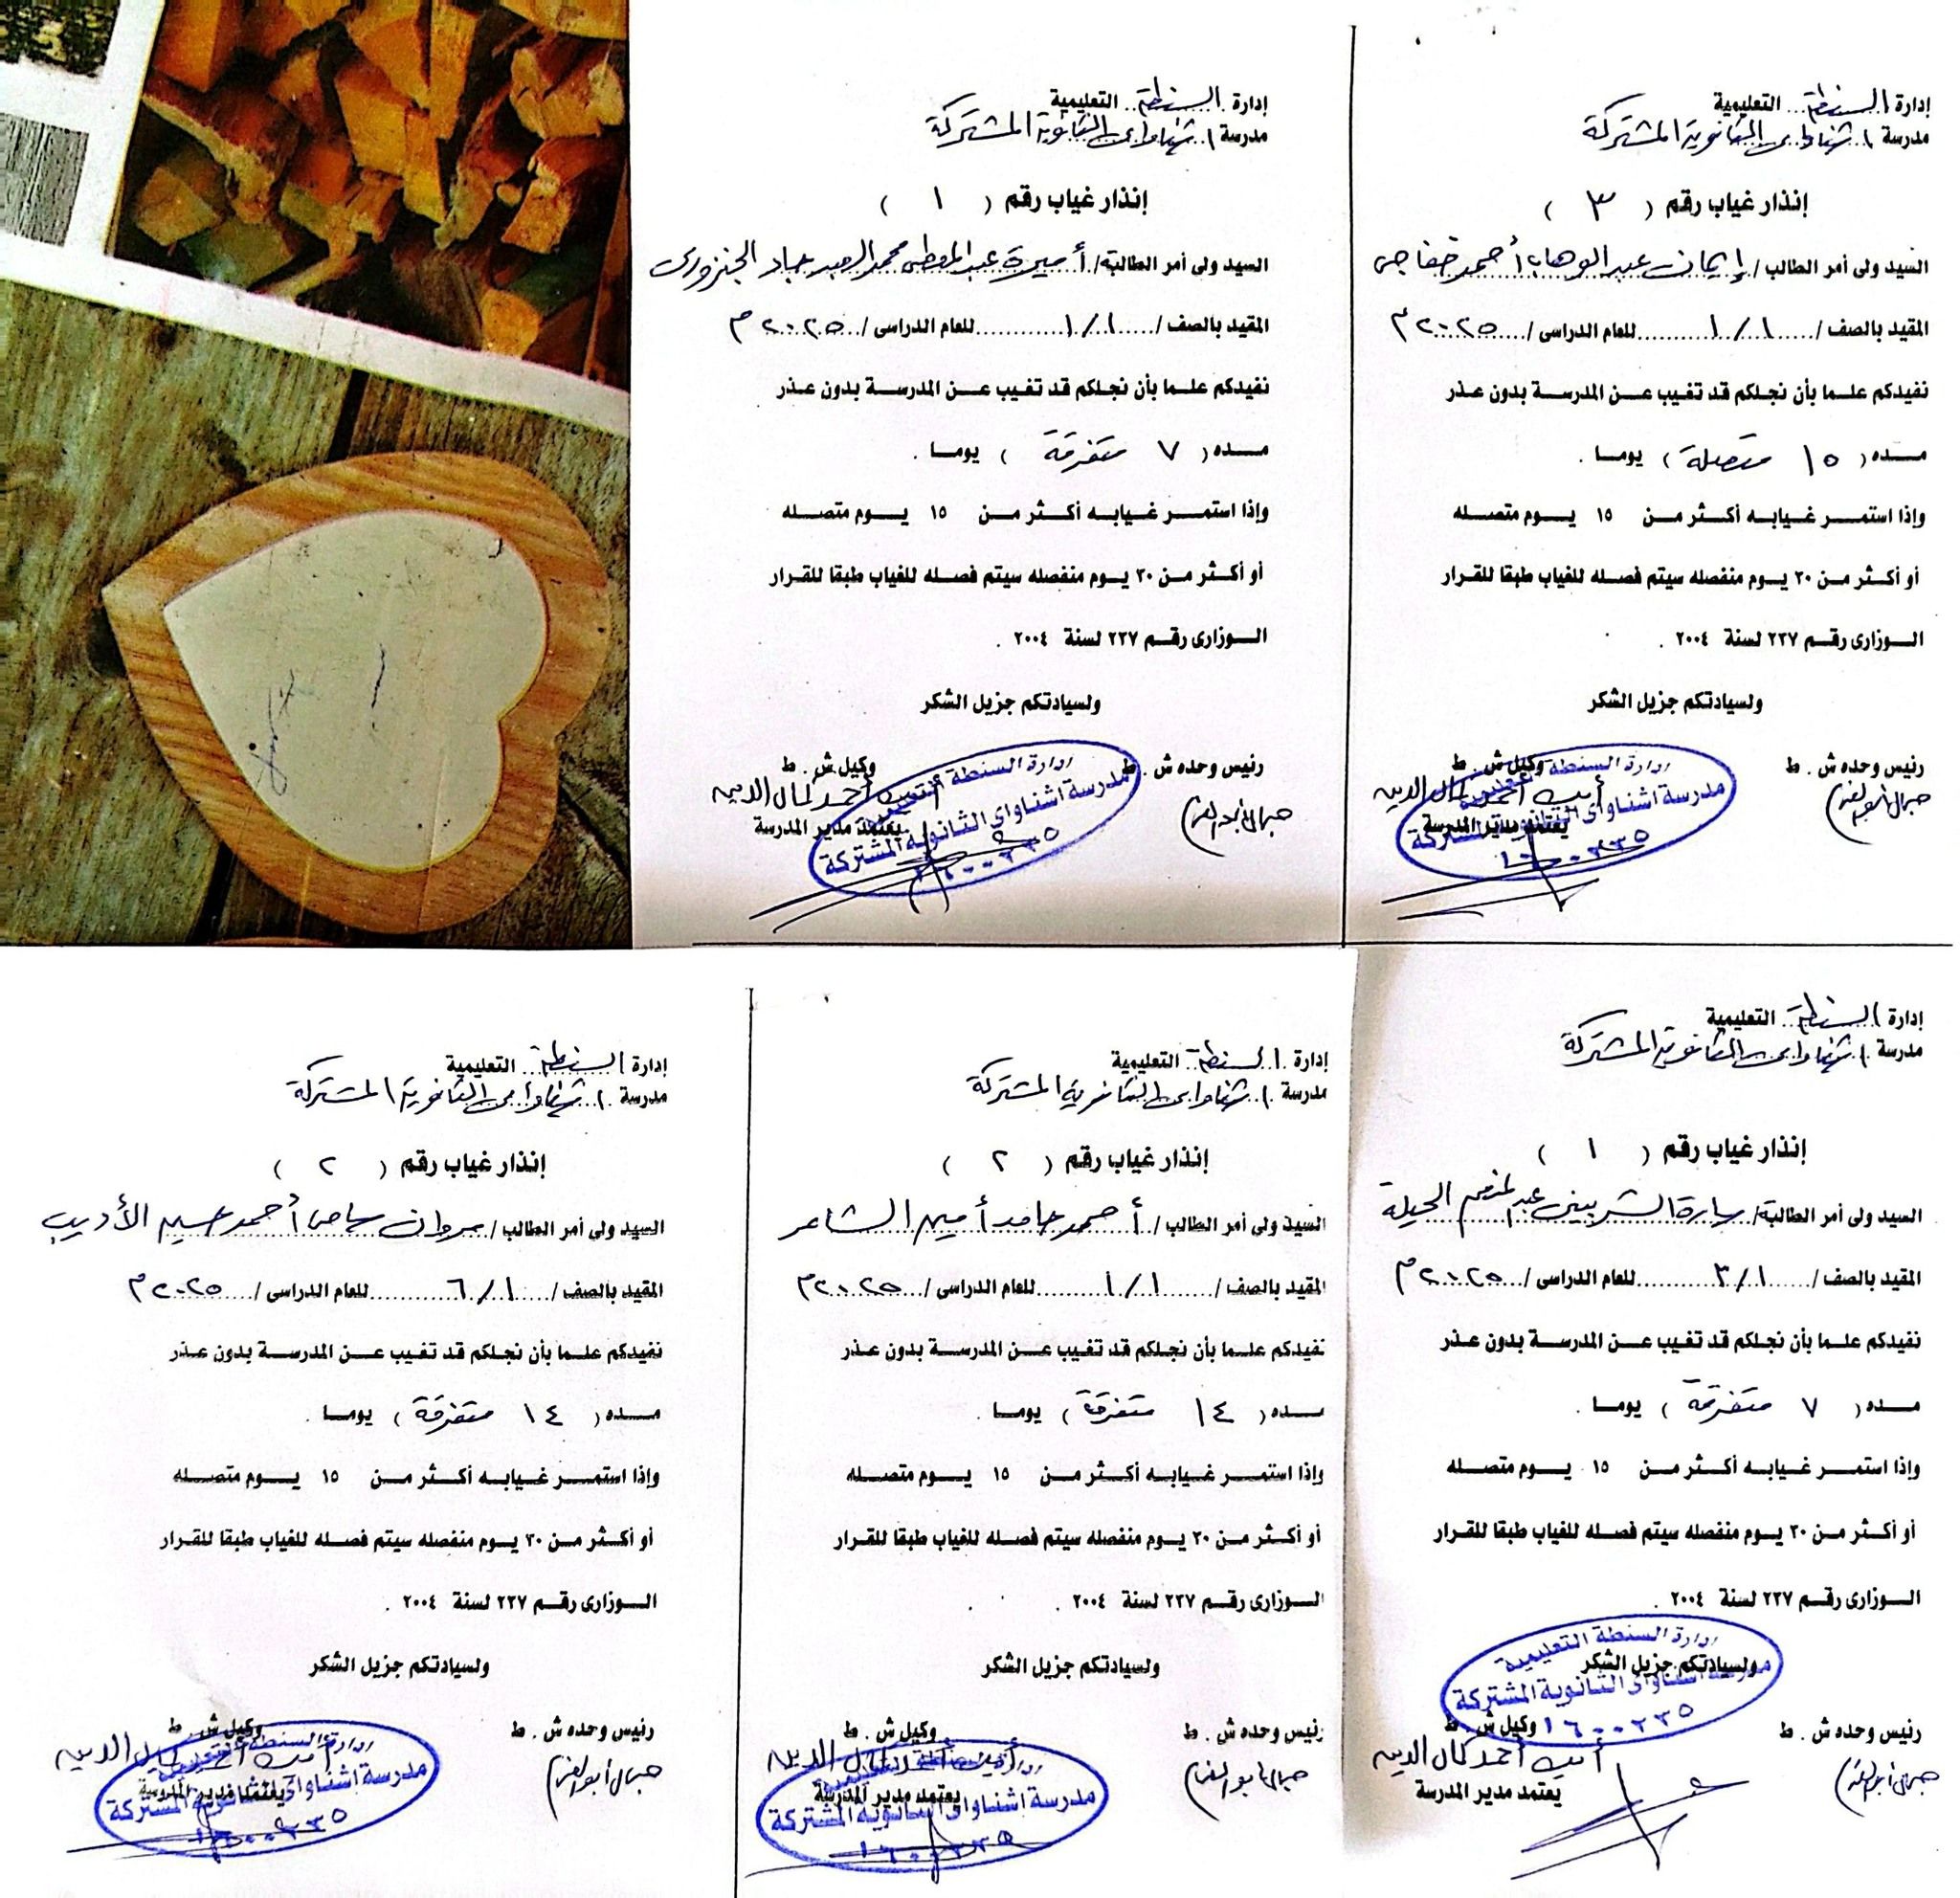 إدارة السنطة التعليمية
مدرسة اشناواى الثانوية المشتركة
إنذار غياب رقم ( ٣ )
السيد ولى أمر الطالب / إيمان عبد الوهاب أحمد خفاجى
المقيد بالصف / ١/١ للعام الدراسى / ٢٠٢٥ م
نفيدكم علما بأن نجلكم قد تغيب عن المدرسة بدون عذر
مده ( ١٥ متصلة ) يوما .
وإذا استمر غيابه أكثر من ١٥ يوم متصله
أو أكثر من ٣٠ يوم منفصله سيتم فصله للغياب طبقا للقرار
الوزارى رقم ٢٣٧ لسنة ٢٠٠٤ .
ولسيادتكم جزيل الشكر
رئيس وحده ش . ط
وكيل ش . ط
جمال أبو العز
أحمد كمال الدين
يعتمد مدير المدرسة
إدارة السنطة التعليمية
مدرسة اشناواى الثانوية المشتركة
١٦٠٠٢٣٥
إدارة السنطة التعليمية
مدرسة اشناواى الثانوية المشتركة
إنذار غياب رقم ( ١ )
السيد ولى أمر الطالبة / أميرة عبد المعطى محمد السيد حماد الجنزورى
المقيد بالصف / ١/١ للعام الدراسى / ٢٠٢٥ م
نفيدكم علما بأن نجلكم قد تغيب عن المدرسة بدون عذر
مده ( ٧ متفرقة ) يوما .
وإذا استمر غيابه أكثر من ١٥ يوم متصله
أو أكثر من ٣٠ يوم منفصله سيتم فصله للغياب طبقا للقرار
الوزارى رقم ٢٣٧ لسنة ٢٠٠٤ .
ولسيادتكم جزيل الشكر
رئيس وحده ش . ط
وكيل ش . ط
جمال أبو العز
أحمد كمال الدين
يعتمد مدير المدرسة
إدارة السنطة التعليمية
مدرسة اشناواى الثانوية المشتركة
١٦٠٠٢٣٥
إدارة السنطة التعليمية
مدرسة اشناواى الثانوية المشتركة
إنذار غياب رقم ( ١ )
السيد ولى أمر الطالبة / سارة الشربينى عبد المنعم الحيلة
المقيد بالصف / ٣/١ للعام الدراسى / ٢٠٢٥ م
نفيدكم علما بأن نجلكم قد تغيب عن المدرسة بدون عذر
مده ( ٧ متفرقة ) يوما .
وإذا استمر غيابه أكثر من ١٥ يوم متصله
أو أكثر من ٣٠ يوم منفصله سيتم فصله للغياب طبقا للقرار
الوزارى رقم ٢٣٧ لسنة ٢٠٠٤ .
ولسيادتكم جزيل الشكر
إدارة السنطة التعليمية
مدرسة اشناواى الثانوية المشتركة
١٦٠٠٢٣٥
رئيس وحده ش . ط
وكيل ش . ط
جمال أبو العز
أحمد كمال الدين
يعتمد مدير المدرسة
إدارة السنطة التعليمية
مدرسة اشناواى الثانوية المشتركة
إنذار غياب رقم ( ٢ )
السيد ولى أمر الطالب / أحمد حامد أمين الشاعر
المقيد بالصف / ١/١ للعام الدراسى / ٢٠٢٥ م
نفيدكم علما بأن نجلكم قد تغيب عن المدرسة بدون عذر
مده ( ١٤ متفرقة ) يوما .
وإذا استمر غيابه أكثر من ١٥ يوم متصله
أو أكثر من ٣٠ يوم منفصله سيتم فصله للغياب طبقا للقرار
الوزارى رقم ٢٣٧ لسنة ٢٠٠٤ .
ولسيادتكم جزيل الشكر
رئيس وحده ش . ط
وكيل ش . ط
جمال أبو العز
يعتمد مدير المدرسة
مدرسة اشناواى الثانوية المشتركة
١٦٠٠٢٣٥
إدارة السنطة التعليمية
مدرسة اشناواى الثانوية المشتركة
إنذار غياب رقم ( ٢ )
السيد ولى أمر الطالب / مروان سامى أحمد حسين الأديب
المقيد بالصف / ٦/١ للعام الدراسى / ٢٠٢٥ م
نفيدكم علما بأن نجلكم قد تغيب عن المدرسة بدون عذر
مده ( ١٤ متفرقة ) يوما .
وإذا استمر غيابه أكثر من ١٥ يوم متصله
أو أكثر من ٣٠ يوم منفصله سيتم فصله للغياب طبقا للقرار
الوزارى رقم ٢٣٧ لسنة ٢٠٠٤ .
ولسيادتكم جزيل الشكر
رئيس وحده ش . ط
وكيل ش . ط
جمال أبو العز
يعتمد مدير المدرسة
إدارة السنطة التعليمية
مدرسة اشناواى الثانوية المشتركة
١٦٠٠٢٣٥